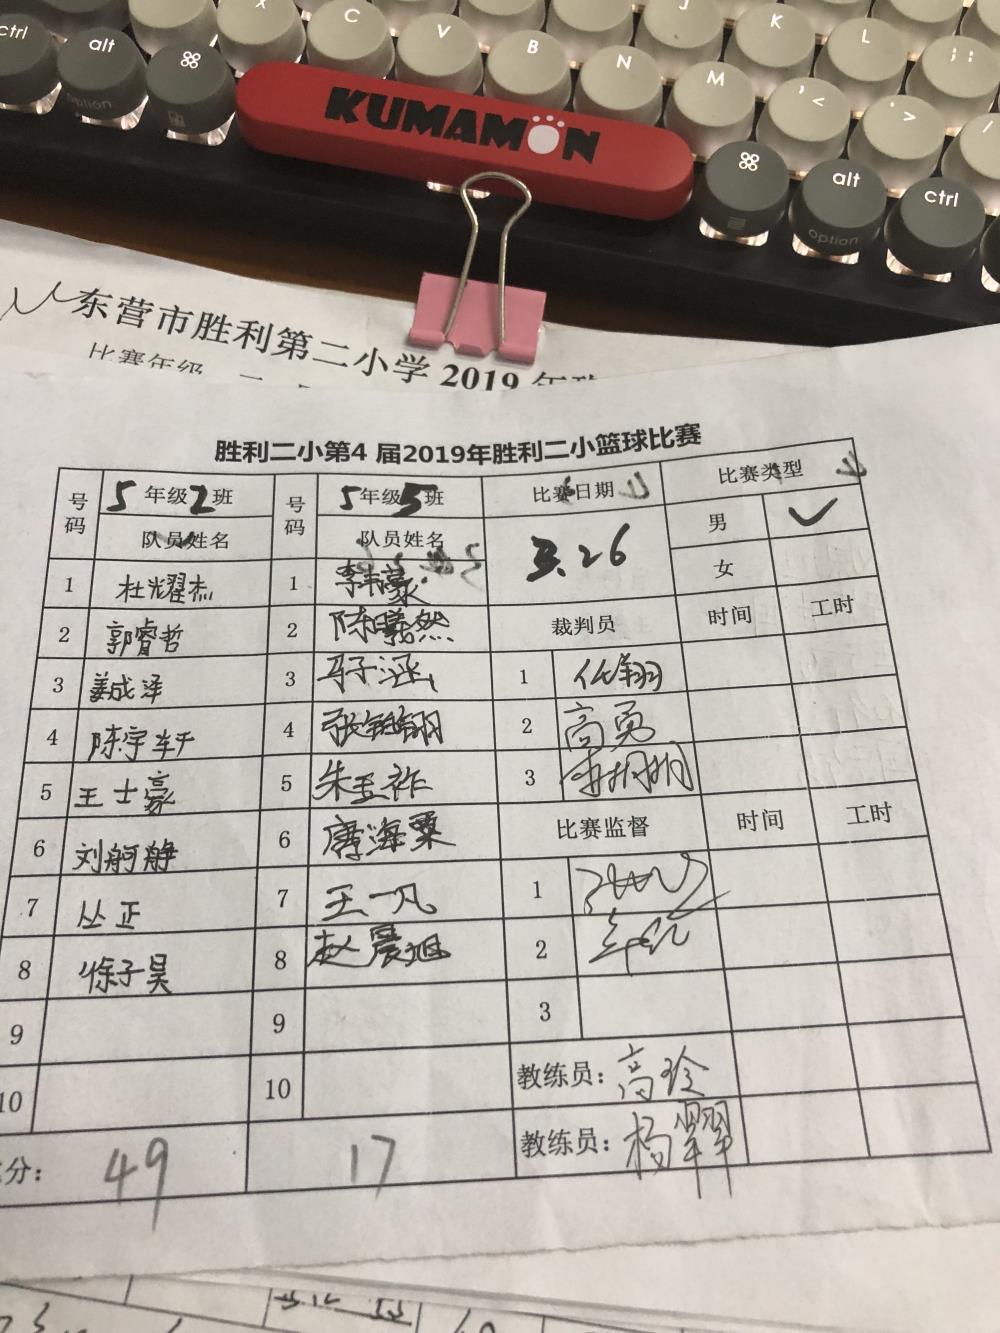 X C V B N M J K L ; :
ctrl alt ⌘ , < . > /
option
KUMAMON
⌘ alt ctrl
option
东营市胜利第二小学 2019 年
比赛年级
胜利二小第4 届2019年胜利二小篮球比赛
号码 5 年级 2 班 号码 5 年级 5 班 比赛日期 比赛类型
队员姓名 队员姓名 3.26 男 ✓
女
1 杜耀杰 1 李韦豪 时间 工时
2 郭睿哲 2 陈曦然 裁判员
3 姜成泽 3 马子涵 1 任翔
4 陈宇轩 4 张 翔 2 高勇
5 王士豪 5 朱玉祚 3
6 刘舸静 6 唐海粟 比赛监督 时间 工时
7 丛正 7 王一凡 1
8 徐子昊 8 赵晨旭 2
9 9 3
10 10 教练员：高玲
教练员：杨翠翠
分： 49 17